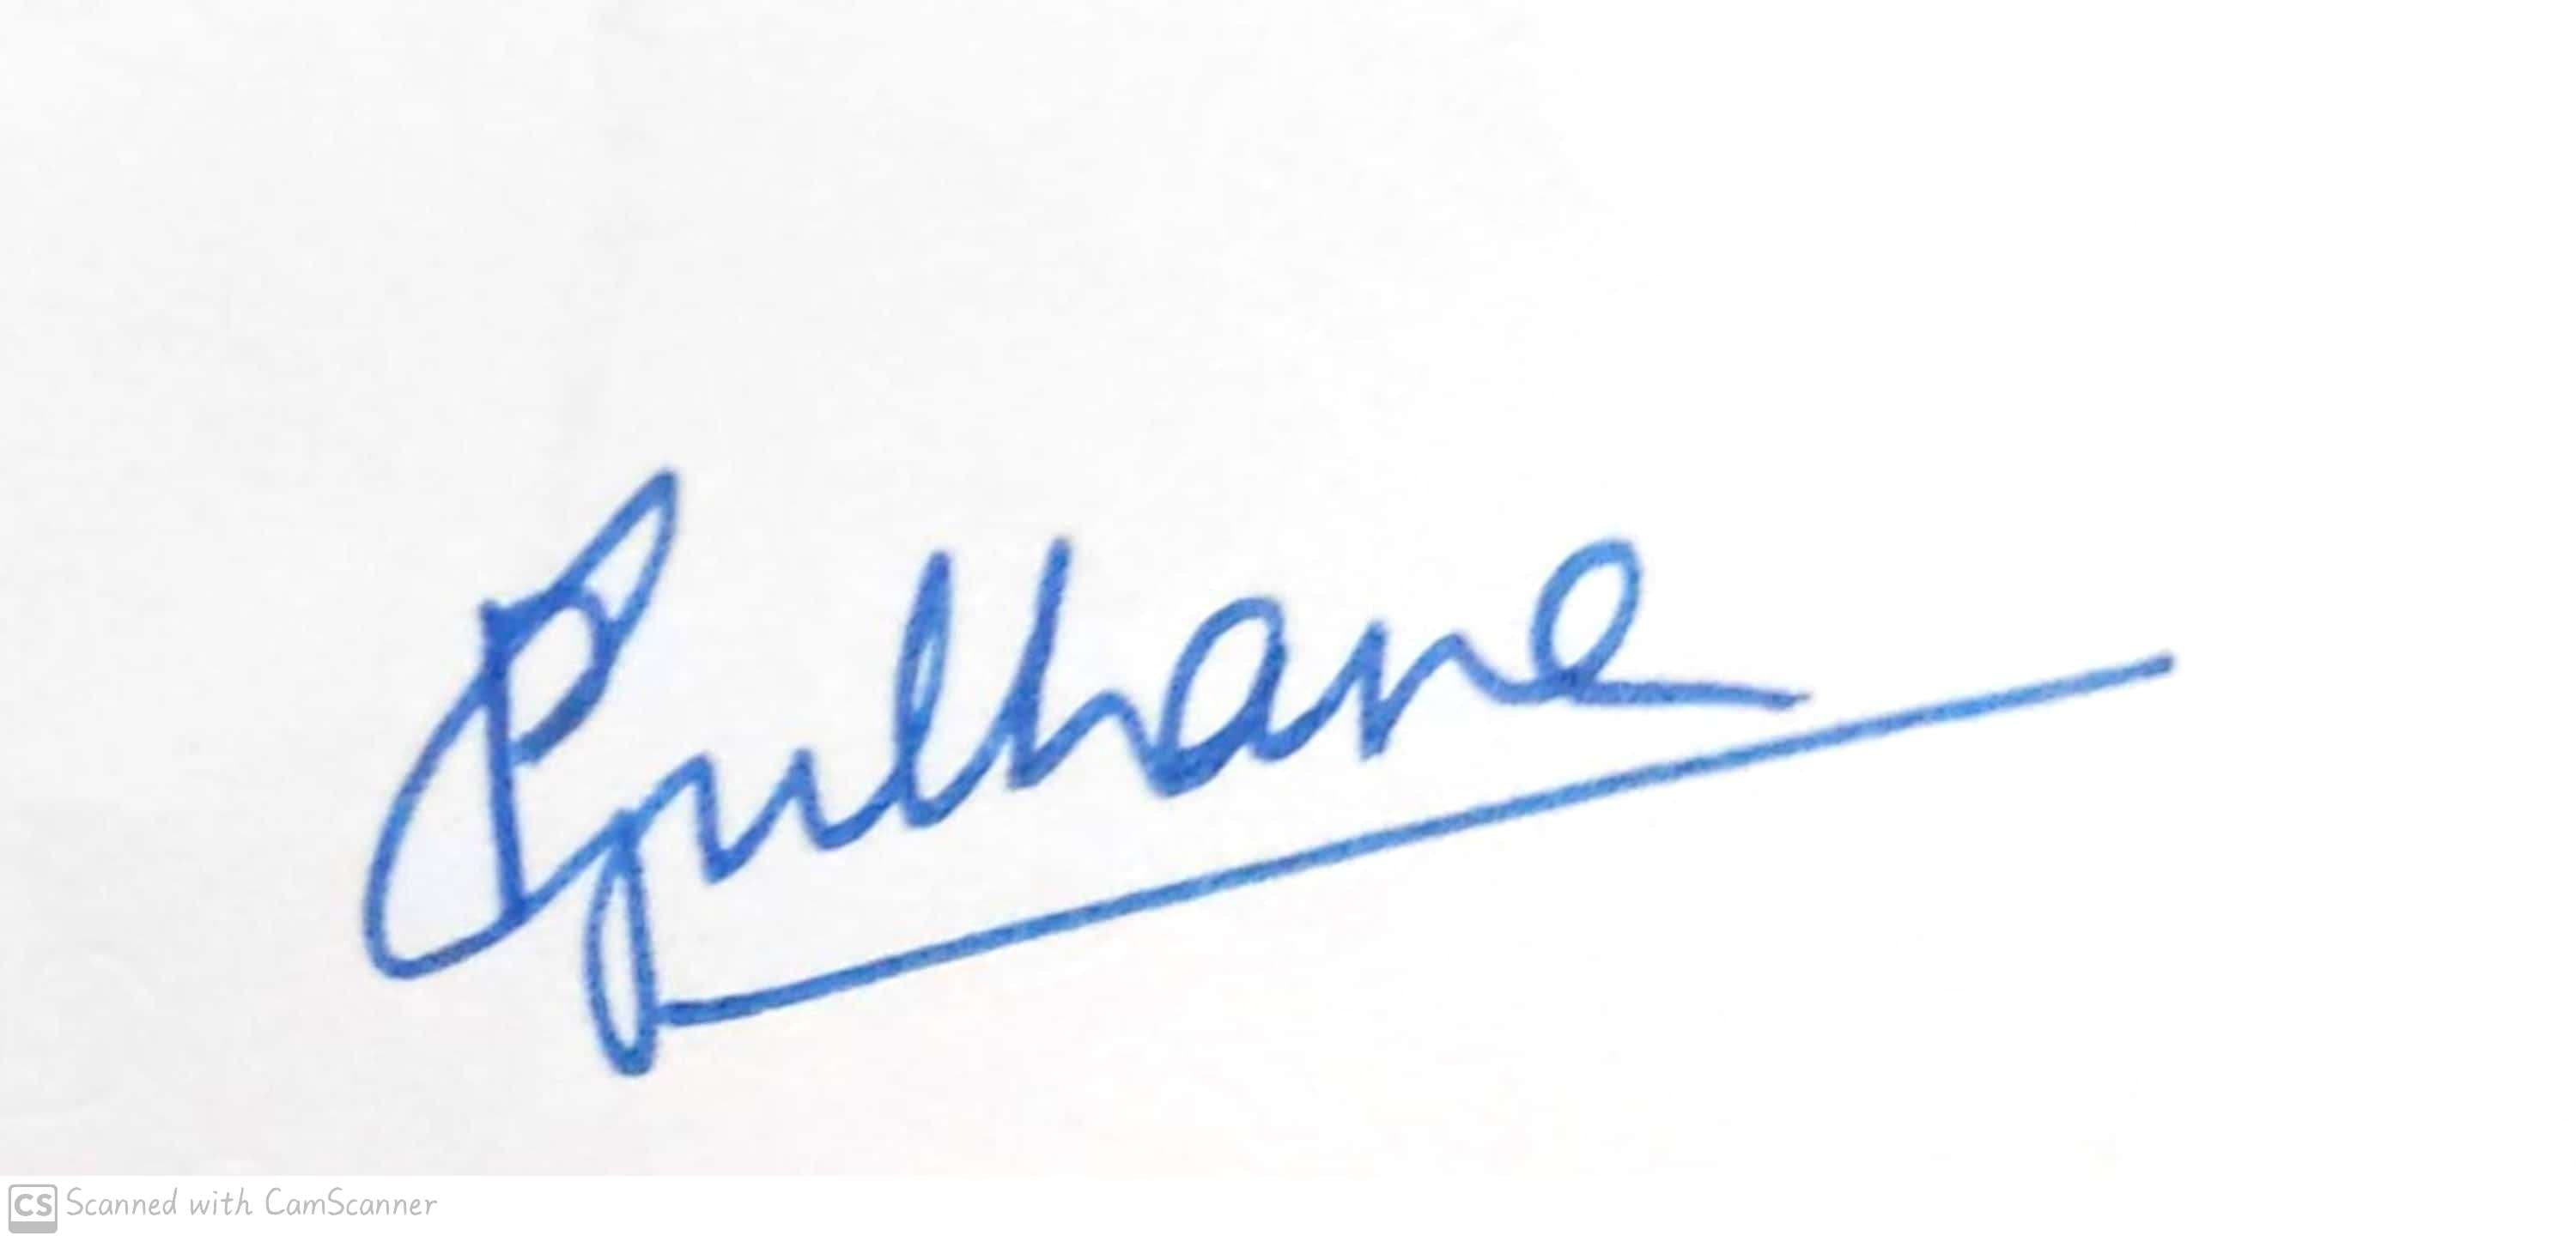 PGulhane
CS Scanned with CamScanner